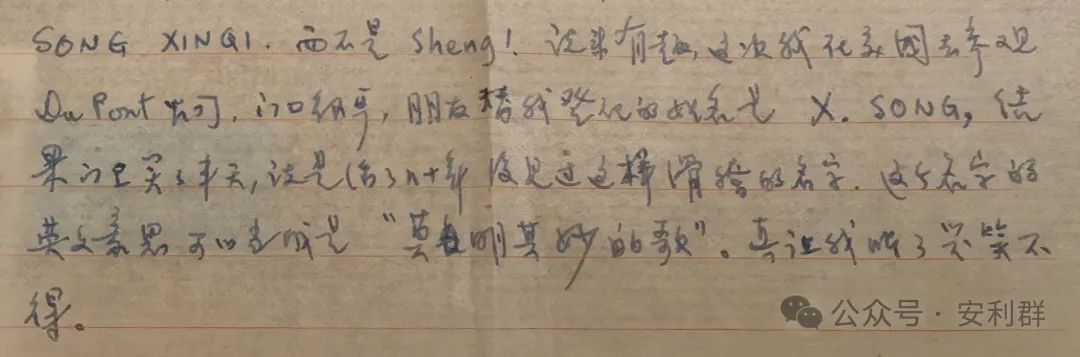 SONG XINQI. 而不是 Sheng! 说来有趣,这次我在美国去参观
Du Pont 公司, 门口领牌, 朋友替我登记的姓名是 X. SONG, 结
果门卫笑了半天, 说是活了 n+年没见过这样滑稽的名字. 这个名字的
英文意思可以当成是 "莫名其妙的歌"。真让我哭笑不
得。
公众号·安利群